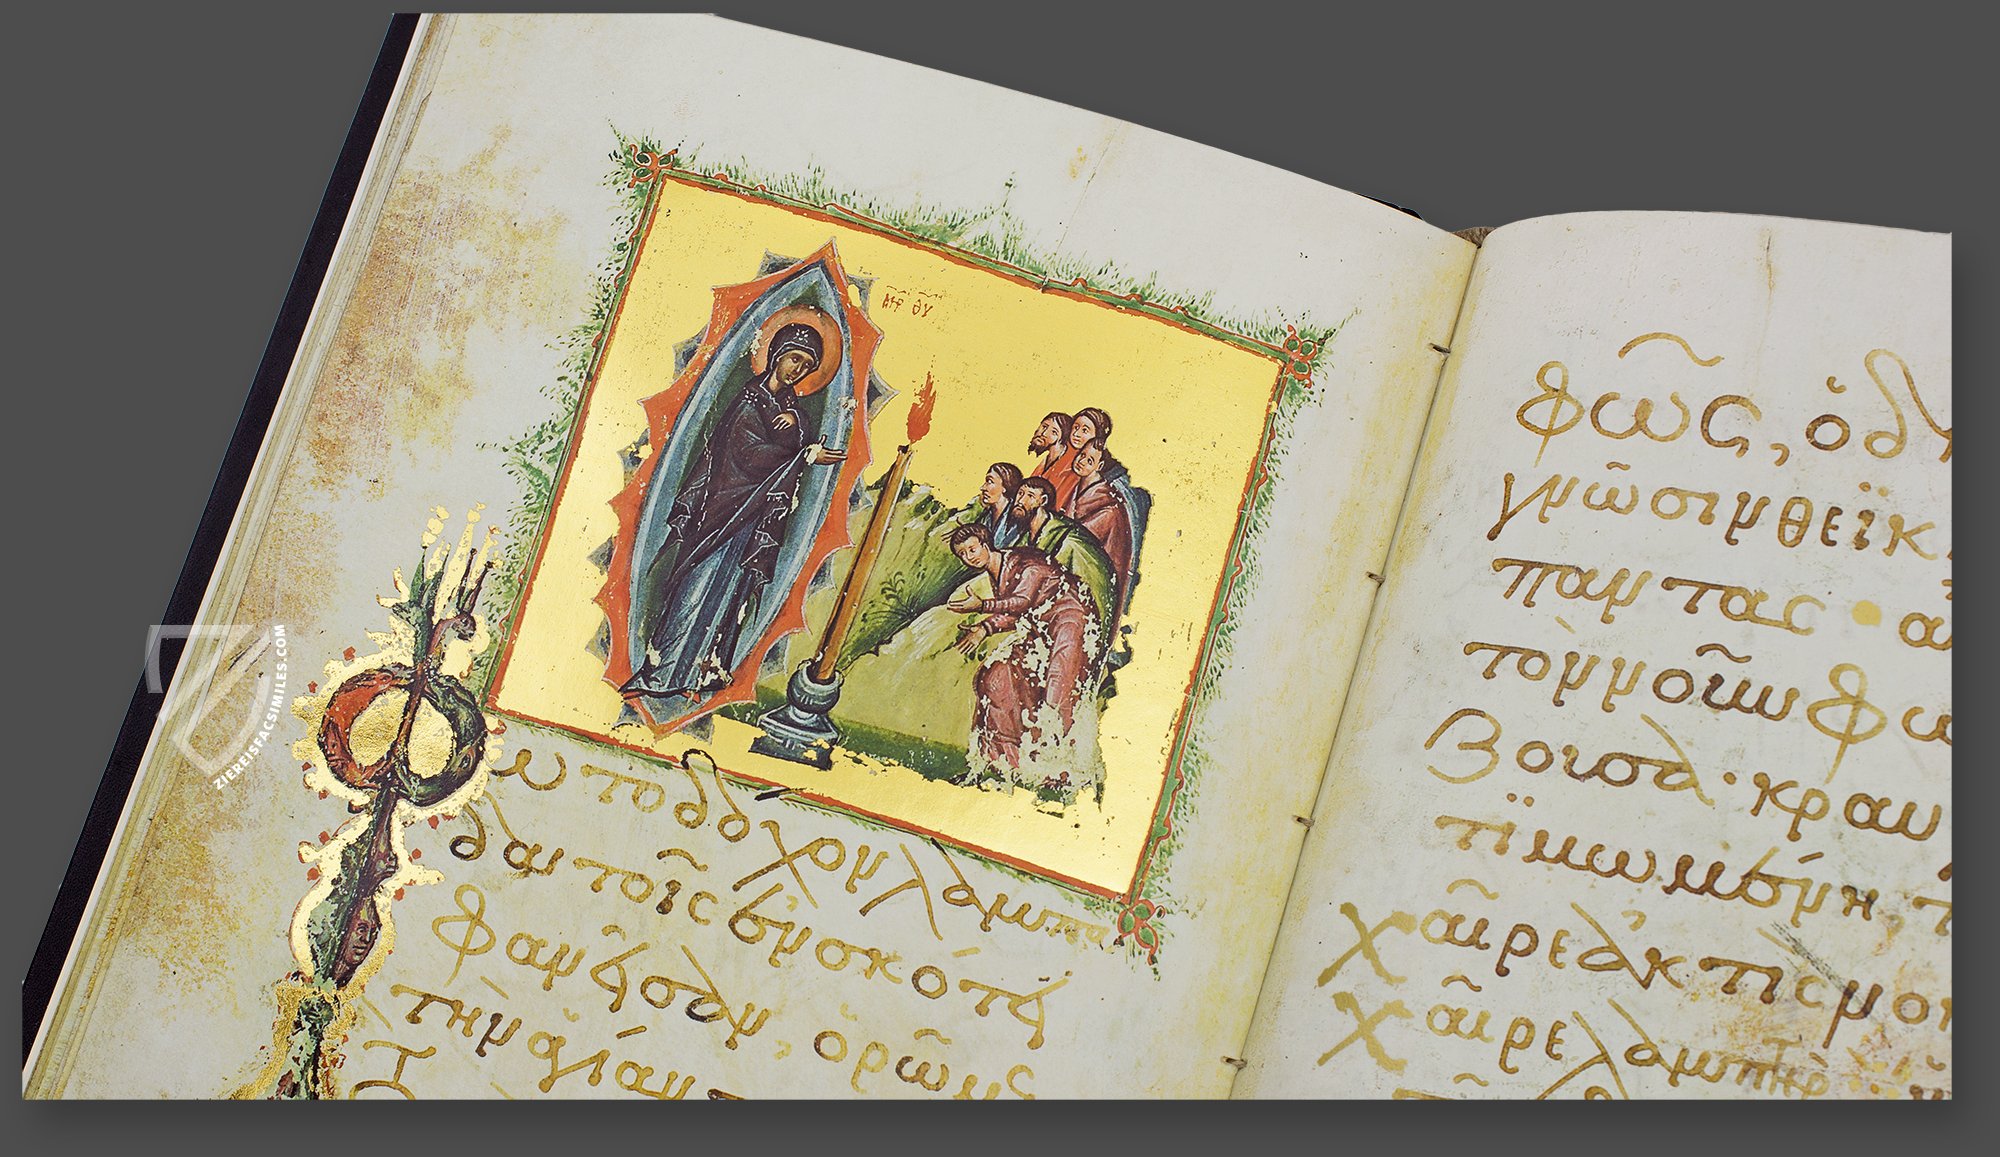 ΜΗΡ ΘΥ
ωτοδόχον λαμπά
δα τοῖς ἐν σκότει
φανεῖσαν, ὁρῶμεν
τὴν ἁγίαν
φῶς, ὁδη
γνῶσιν θεϊκ
παντας · α
τὸν νοῦν φω
ζουσα · κραυ
τϊμωμένη, τ
χαῖρε ἀκτὶς νο
χαῖρε λαμπτὴρ
ZIEREISFACSIMILES.COM